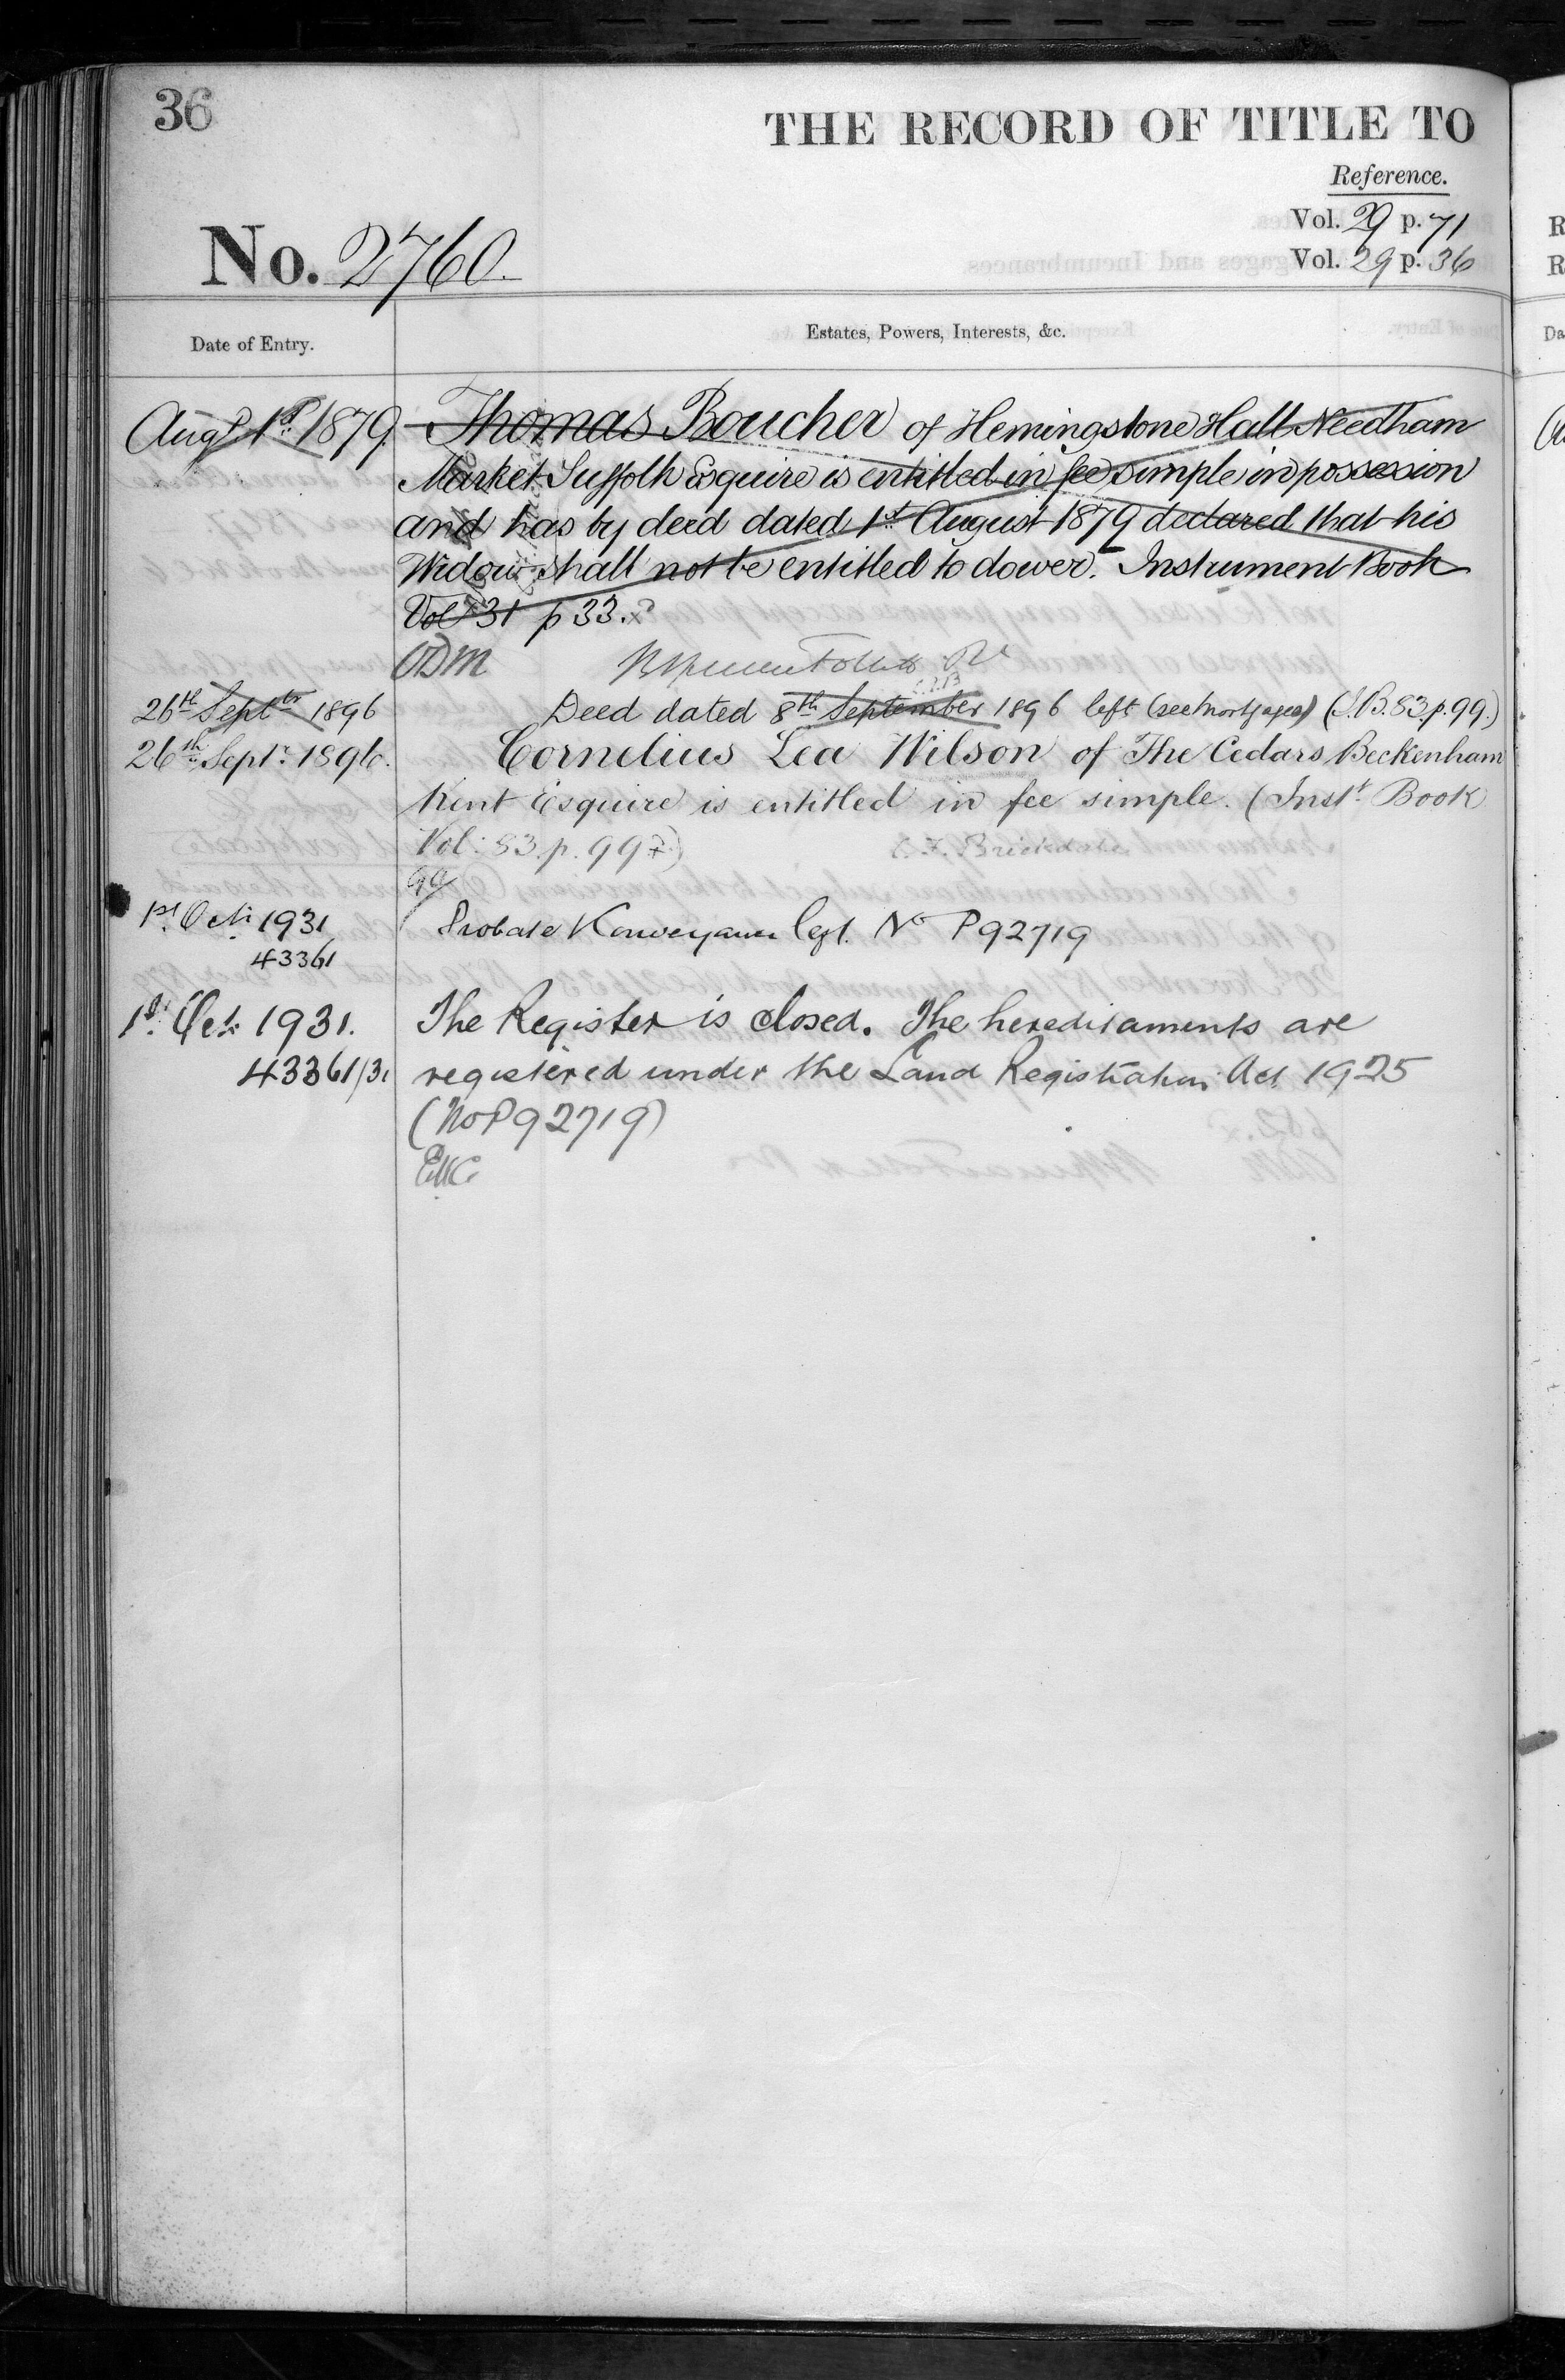 36
THE RECORD OF TITLE TO
Reference.
Vol. 29 p. 71
Vol. 29 p. 36
No. 2760.
Date of Entry.
Estates, Powers, Interests, &c.
Augt 1st 1879
Thomas Boucher of Hemingstone Hall Needham
Market Suffolk Esquire is entitled in fee simple in possession
and has by deed dated 1st August 1879 declared that his
Widow shall not be entitled to dower. Instrument Book
Vol 31 p 33.
ODM
26th Septbr 1896
Deed dated 8th September 1896 left (see Mortgages) (I.B. 83. p. 99.)
26th Septr 1896.
Cornelius Lea Wilson of The Cedars Beckenham
Kent Esquire is entitled in fee simple. (Instt Book
Vol: 83. p. 99)
1st Oct. 1931
43361
Probate No P92719
1st Oct. 1931.
43361/31
The Register is closed. The hereditaments are
registered under the Land Registration Act 1925
(No P92719)